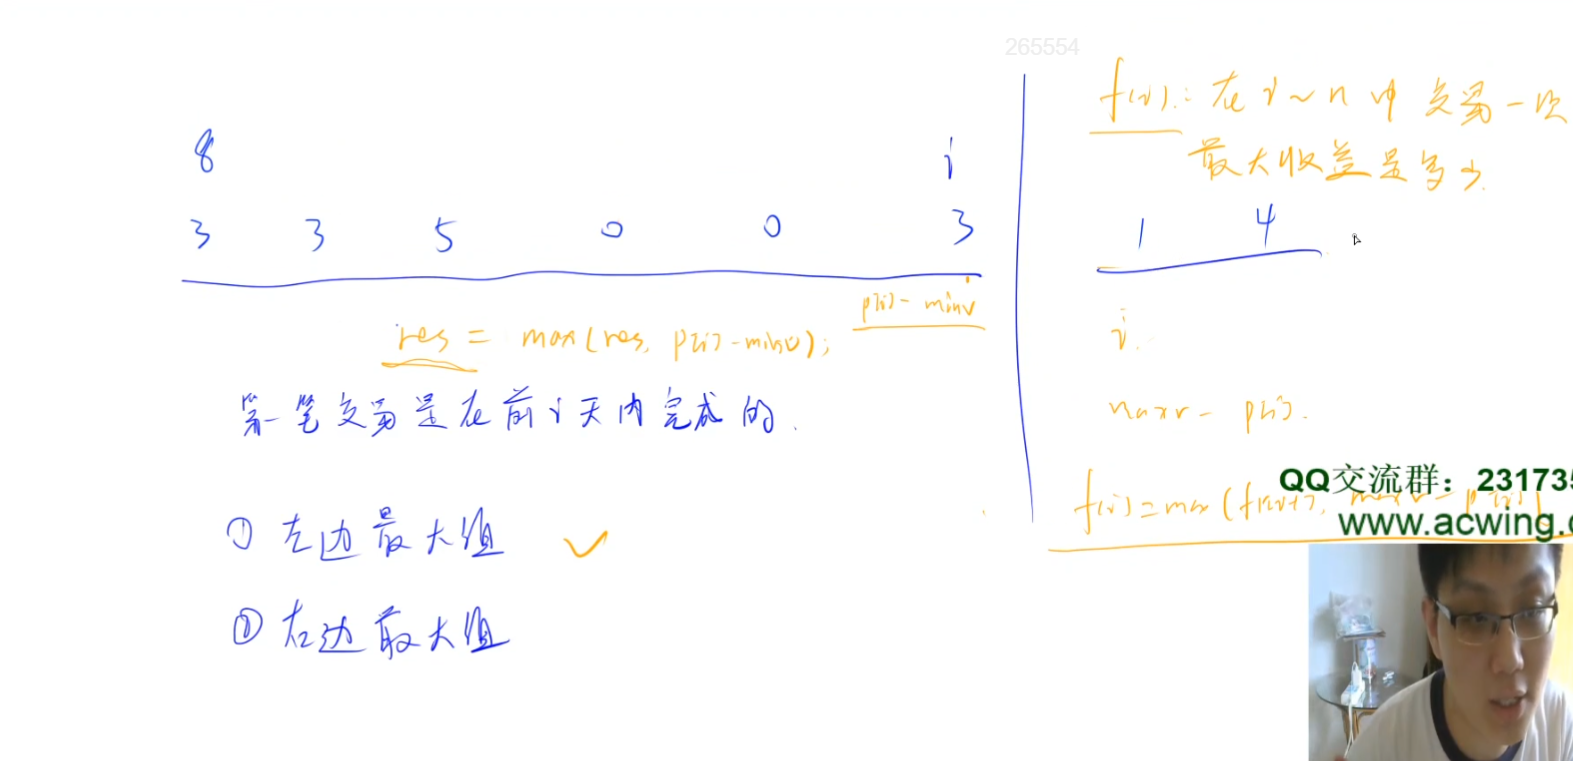 265554
8 i
3 3 5 0 0 3
p[i] - minv
res = max(res, p[i]-minv);
第一笔交易是在前i天内完成的.
① 左边最大值 ✓
② 右边最大值
f(i): 在i~n中交易一次
最大收益是多少.
1 4
i.
maxv - p[i].
QQ交流群：23173
f(i)=max(f(i+1),
www.acwing.